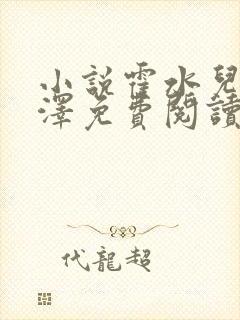 小說霍水兒
澤免費閱讀
代龍超